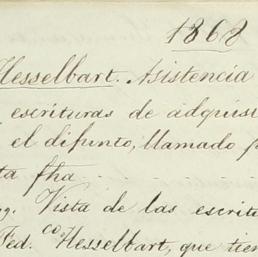 1868
Hesselbart. Asistencia
escrituras de adquisi
el difunto, llamado p
ta fha
Vista de las escrit
Fed. Co Hesselbart, que tien